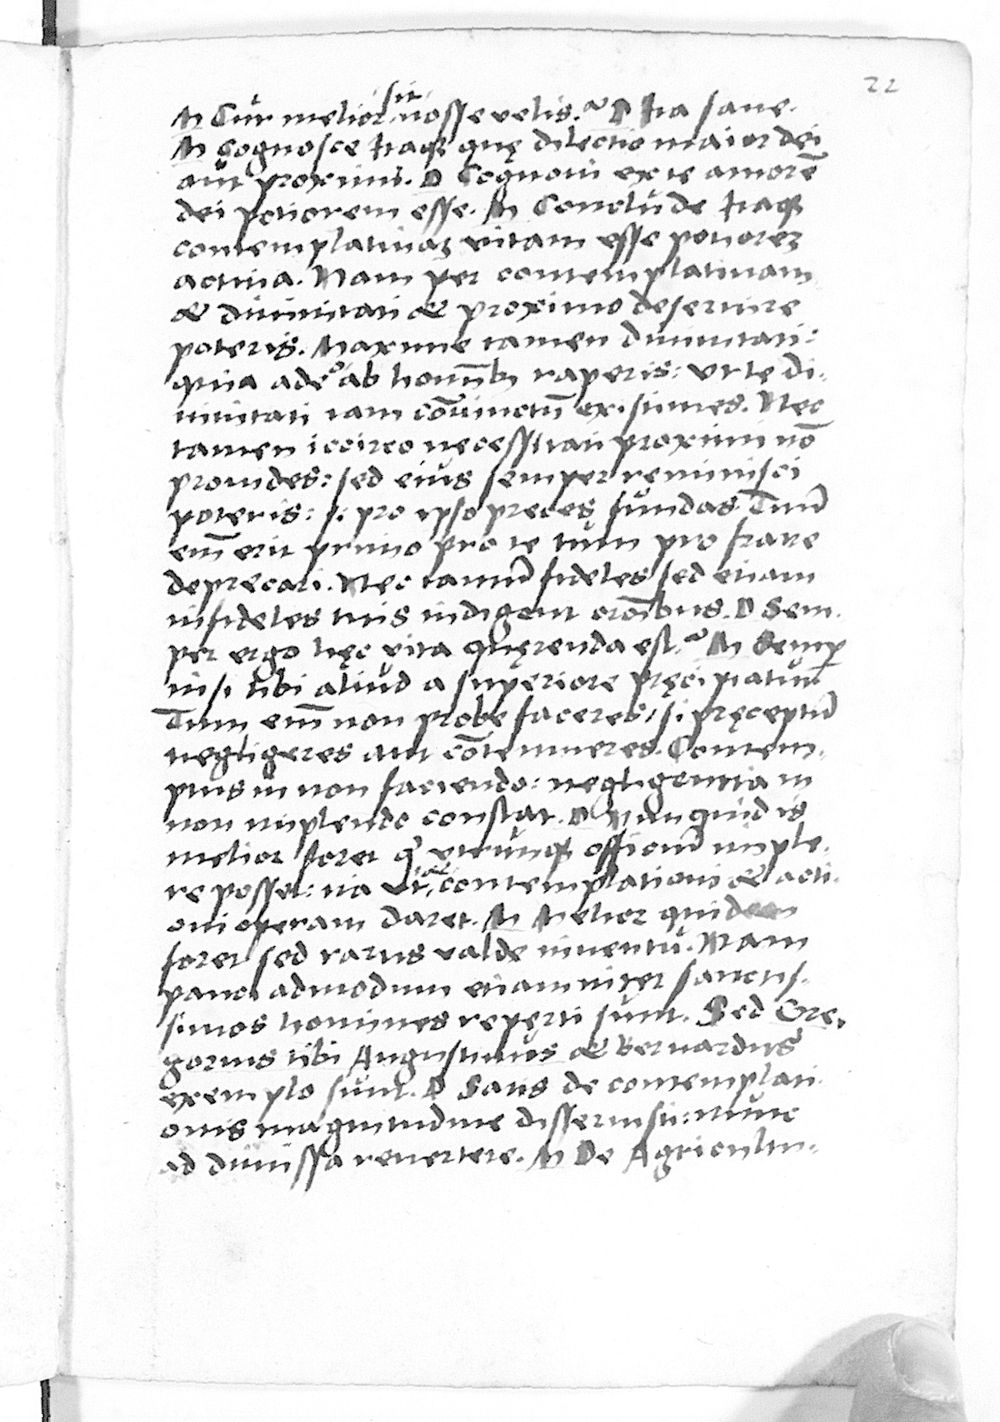 22
M Cur melior sit nosse velis? D Ita sane.
M Cognosce itaq; quę dilectio maior dei
aut proximi. D Cognoui ex te amorē
dei potiorem esse. M Conclude itaq;
contemplatiuaȝ vitam esse potioreȝ
actiua. Nam per contemplatiuam
& diuinitati & proximo deseruire
poteris. Maxime tamen diuinitati:
quia adeo ab homīb; raperis: vt te di-
uinitati iam cōiunctū existimes. Nec
tamen iccirco necessitati proximi nō
prouides: sed eius semper reminisci
poteris: si pro ipso preces fundas. Tuū
em̄ erit primo pro te tum pro fratre
deprecari. Nec tantū fideles sed etiam
infideles tuis indigent orōibus. D Sem-
per ergo hęc vita quęrenda est? M Semp
nisi tibi aliud a superiore pręcipiatur
Tum em̄ non probe faceres, si pręceptū
negligeres aut cōtemneres. Contem-
ptus in non faciendo: negligentia in
non implendo constat. D Nunquid is
melior foret q̄ vtrunq; officiū imple-
re posset: ita vt & contemplationi & acti-
oni operam daret. M Melior quidem
foret sed rarus valde inuentu. Nam
pauci admodum etiam inter sanctis-
simos homines reperti sunt. Sed Gre-
gorius tibi Augustinus & Bernardus
exemplo sunt. D Satis de contemplati-
onis magnitudine disseruisti: nunc
ad dimissa reuertere. M De Agricultu-